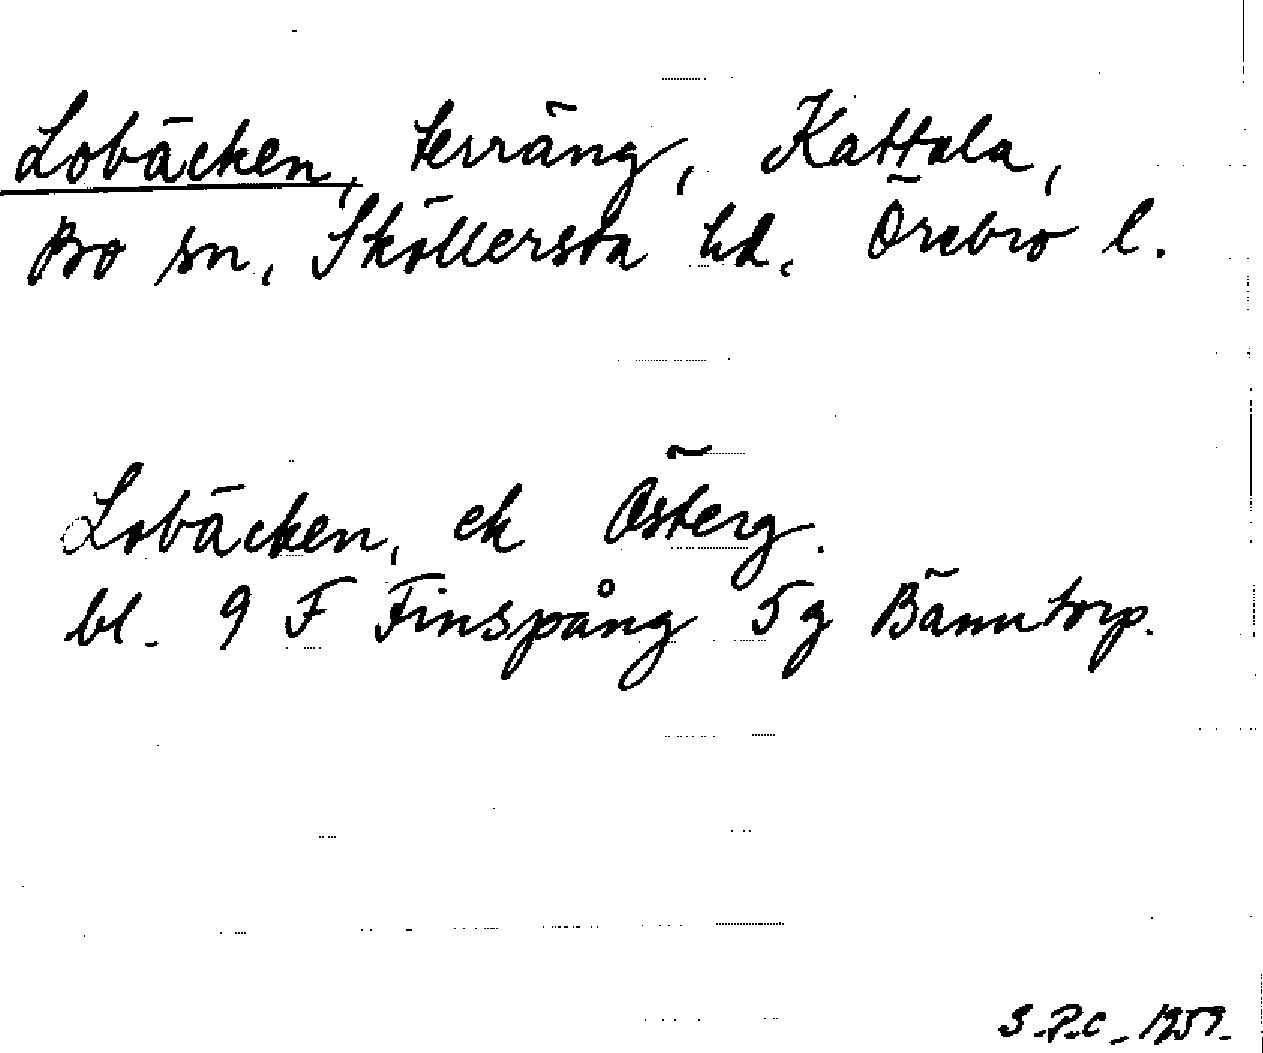 Lobäcken, terräng, Kattala,
Bo sn, Sköllersta hd, Örebro l.
Lobäcken, ek Österg.
bl. 9 F Finspång 5 g Bänntorp.
S.P.C. 1959.